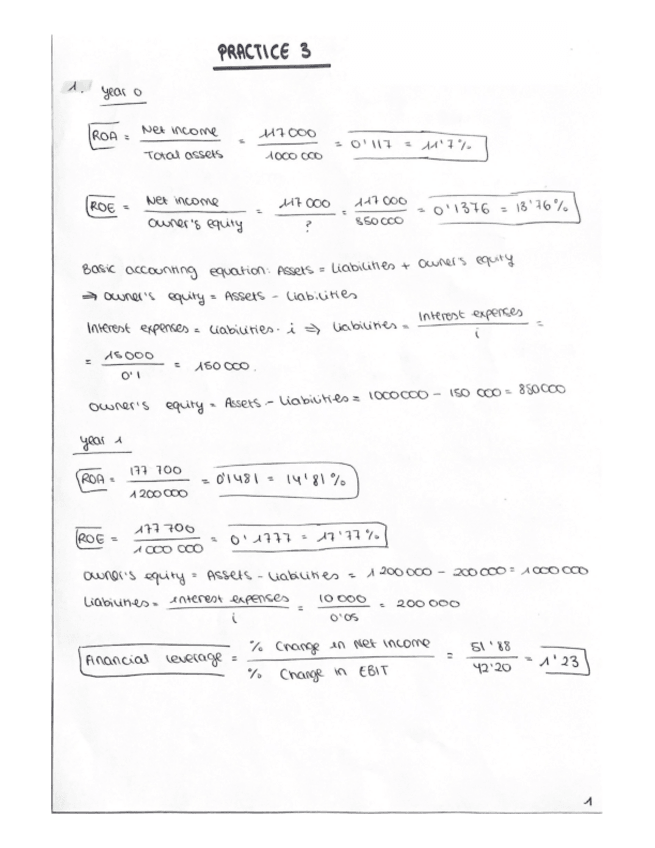 PRACTICE 3
1. year 0
ROA = Net income / Total assets = 117000 / 1000 000 = 0'117 = 11'7%
ROE = Net income / owner's equity = 117 000 / ? = 117 000 / 850 000 = 0'1376 = 13'76%
Basic accounting equation: Assets = Liabilities + owner's equity
⇒ owner's equity = Assets - Liabilities
Interest expenses = Liabilities · i ⇒ Liabilities = Interest expenses / i =
= 15000 / 0'1 = 150 000.
owner's equity = Assets - Liabilities = 1000000 - 150 000 = 850000
year 1
ROA = 177 700 / 1200 000 = 0'1481 = 14'81%
ROE = 177 700 / 1 000 000 = 0'1777 = 17'77%
owner's equity = Assets - Liabilities = 1 200 000 - 200 000 = 1000 000
Liabilities = interest expenses / i = 10 000 / 0'05 = 200 000
Financial leverage = % Change in Net Income / % Change in EBIT = 51'88 / 42'20 = 1'23
1